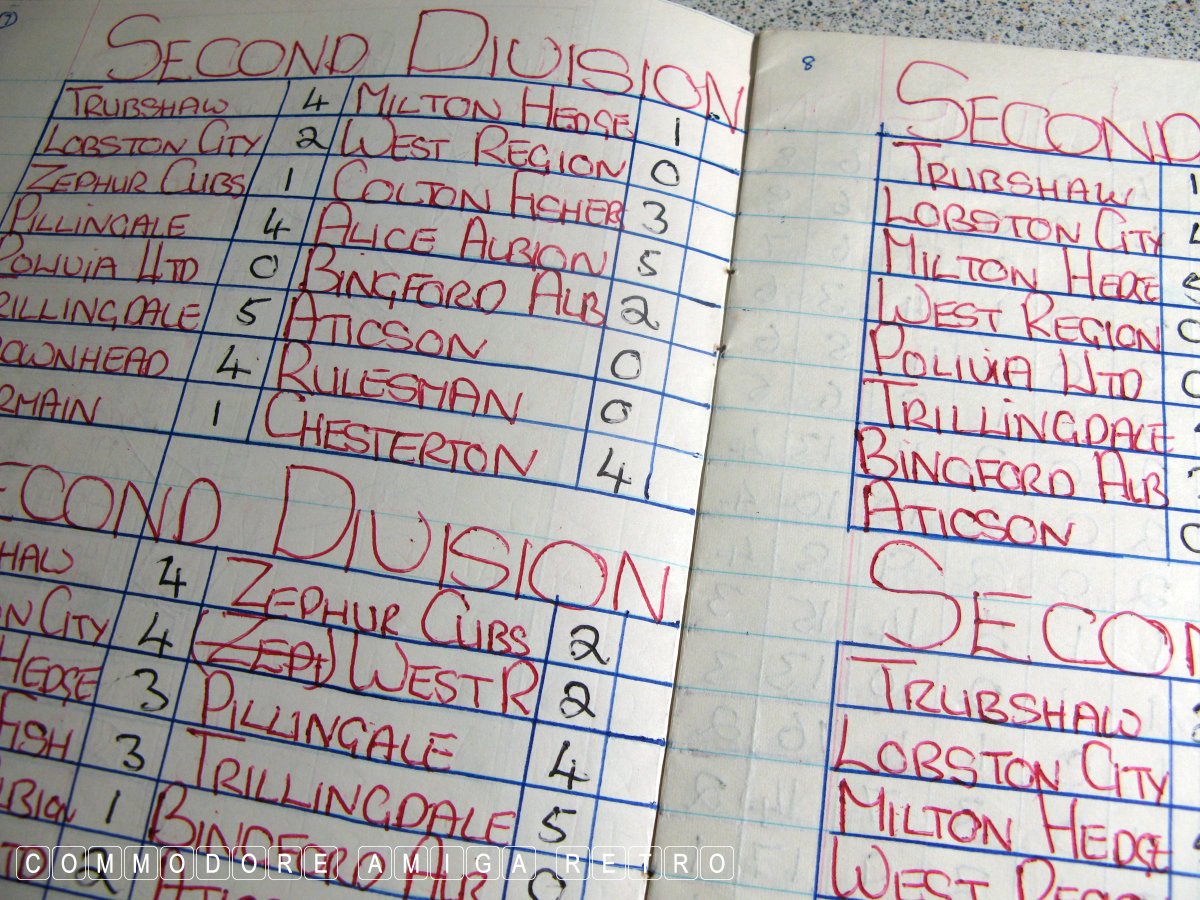 SECOND DIVISION
TRUBSHAW 4 MILTON HEDGE 1
LOBSTON CITY 2 WEST REGION 0
ZEPHUR CUBS 1 COLTON FISHER 3
PILLINGALE 4 ALICE ALBION 5
POLIVIA UTD 0 BINGFORD ALB 2
RILLINGDALE 5 ATICSON 0
OWNHEAD 4 RULESMAN 0
RMAIN 1 CHESTERTON 4
ECOND DIVISION
HAW 4 ZEPHUR CUBS 2
N CITY 4 WEST R 2
HEDGE 3 PILLINGALE 4
FISH 3 TRILLINGDALE 5
LBION 1 BINDFORD ALB 0
TD 2
8
SECOND
TRUBSHAW 1
LOBSTON CITY
MILTON HEDGE
WEST REGION 0
POLIVIA UTD 0
TRILLINGDALE
BINGFORD ALB
ATICSON 0
SECON
TRUBSHAW
LOBSTON CITY
MILTON HEDGE
WEST
COMMODORE AMIGA RETRO